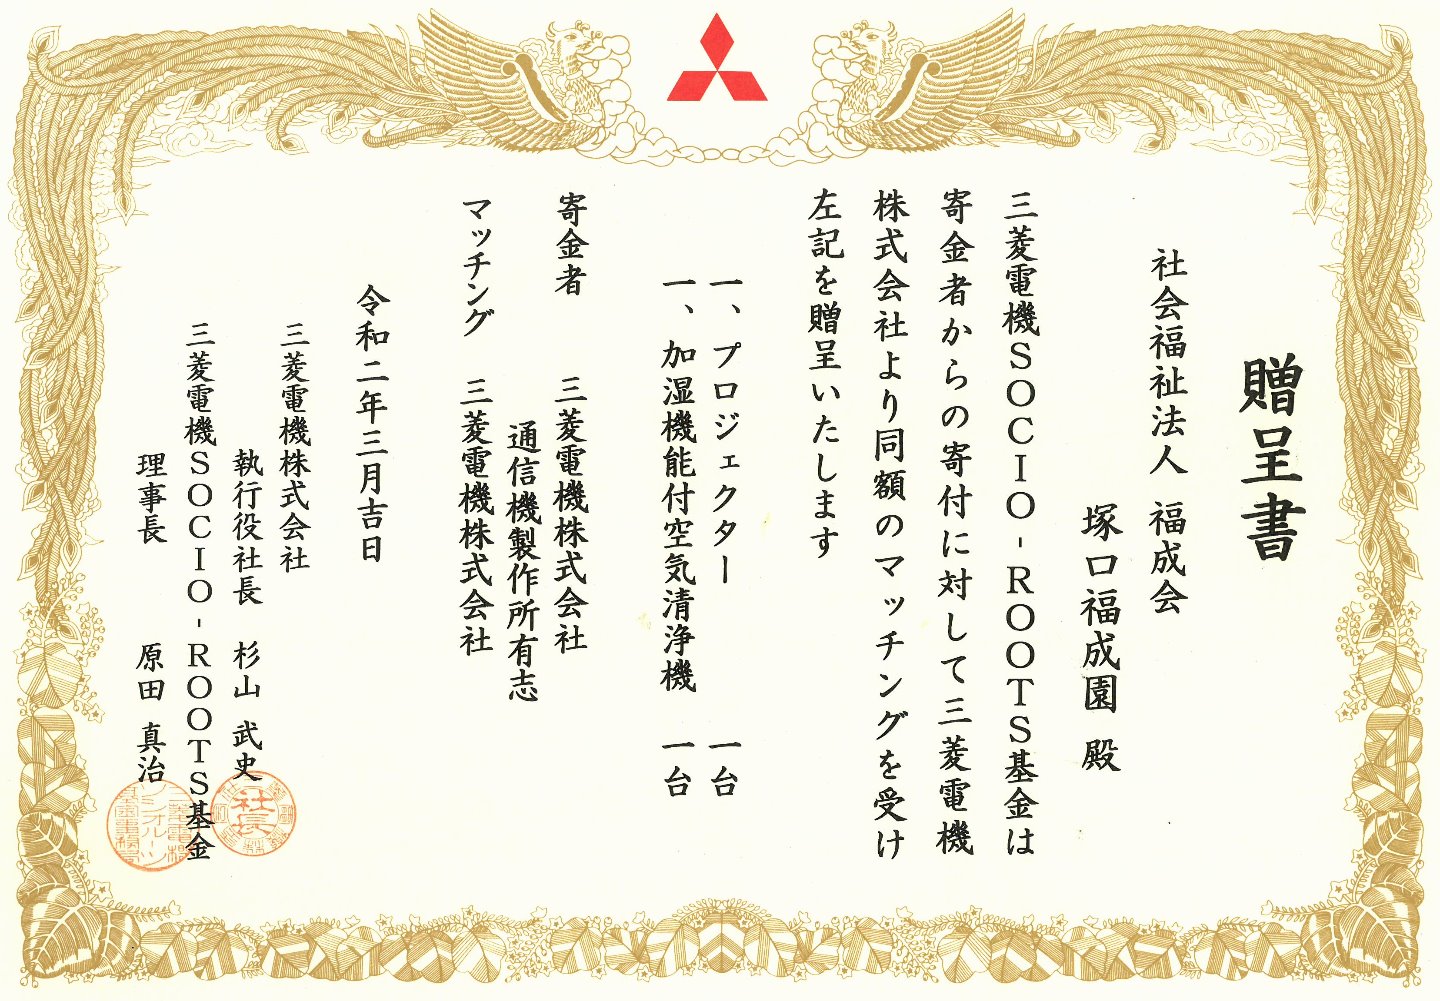 贈呈書
社会福祉法人 福成会
塚口福成園 殿
三菱電機SOCIO-ROOTS基金は
寄金者からの寄付に対して三菱電機
株式会社より同額のマッチングを受け
左記を贈呈いたします
一、プロジェクター 一台
一、加湿機能付空気清浄機 一台
寄金者 三菱電機株式会社
通信機製作所有志
マッチング 三菱電機株式会社
令和二年三月吉日
三菱電機株式会社
執行役社長 杉山 武史
三菱電機SOCIO-ROOTS基金
理事長 原田 真治
社長